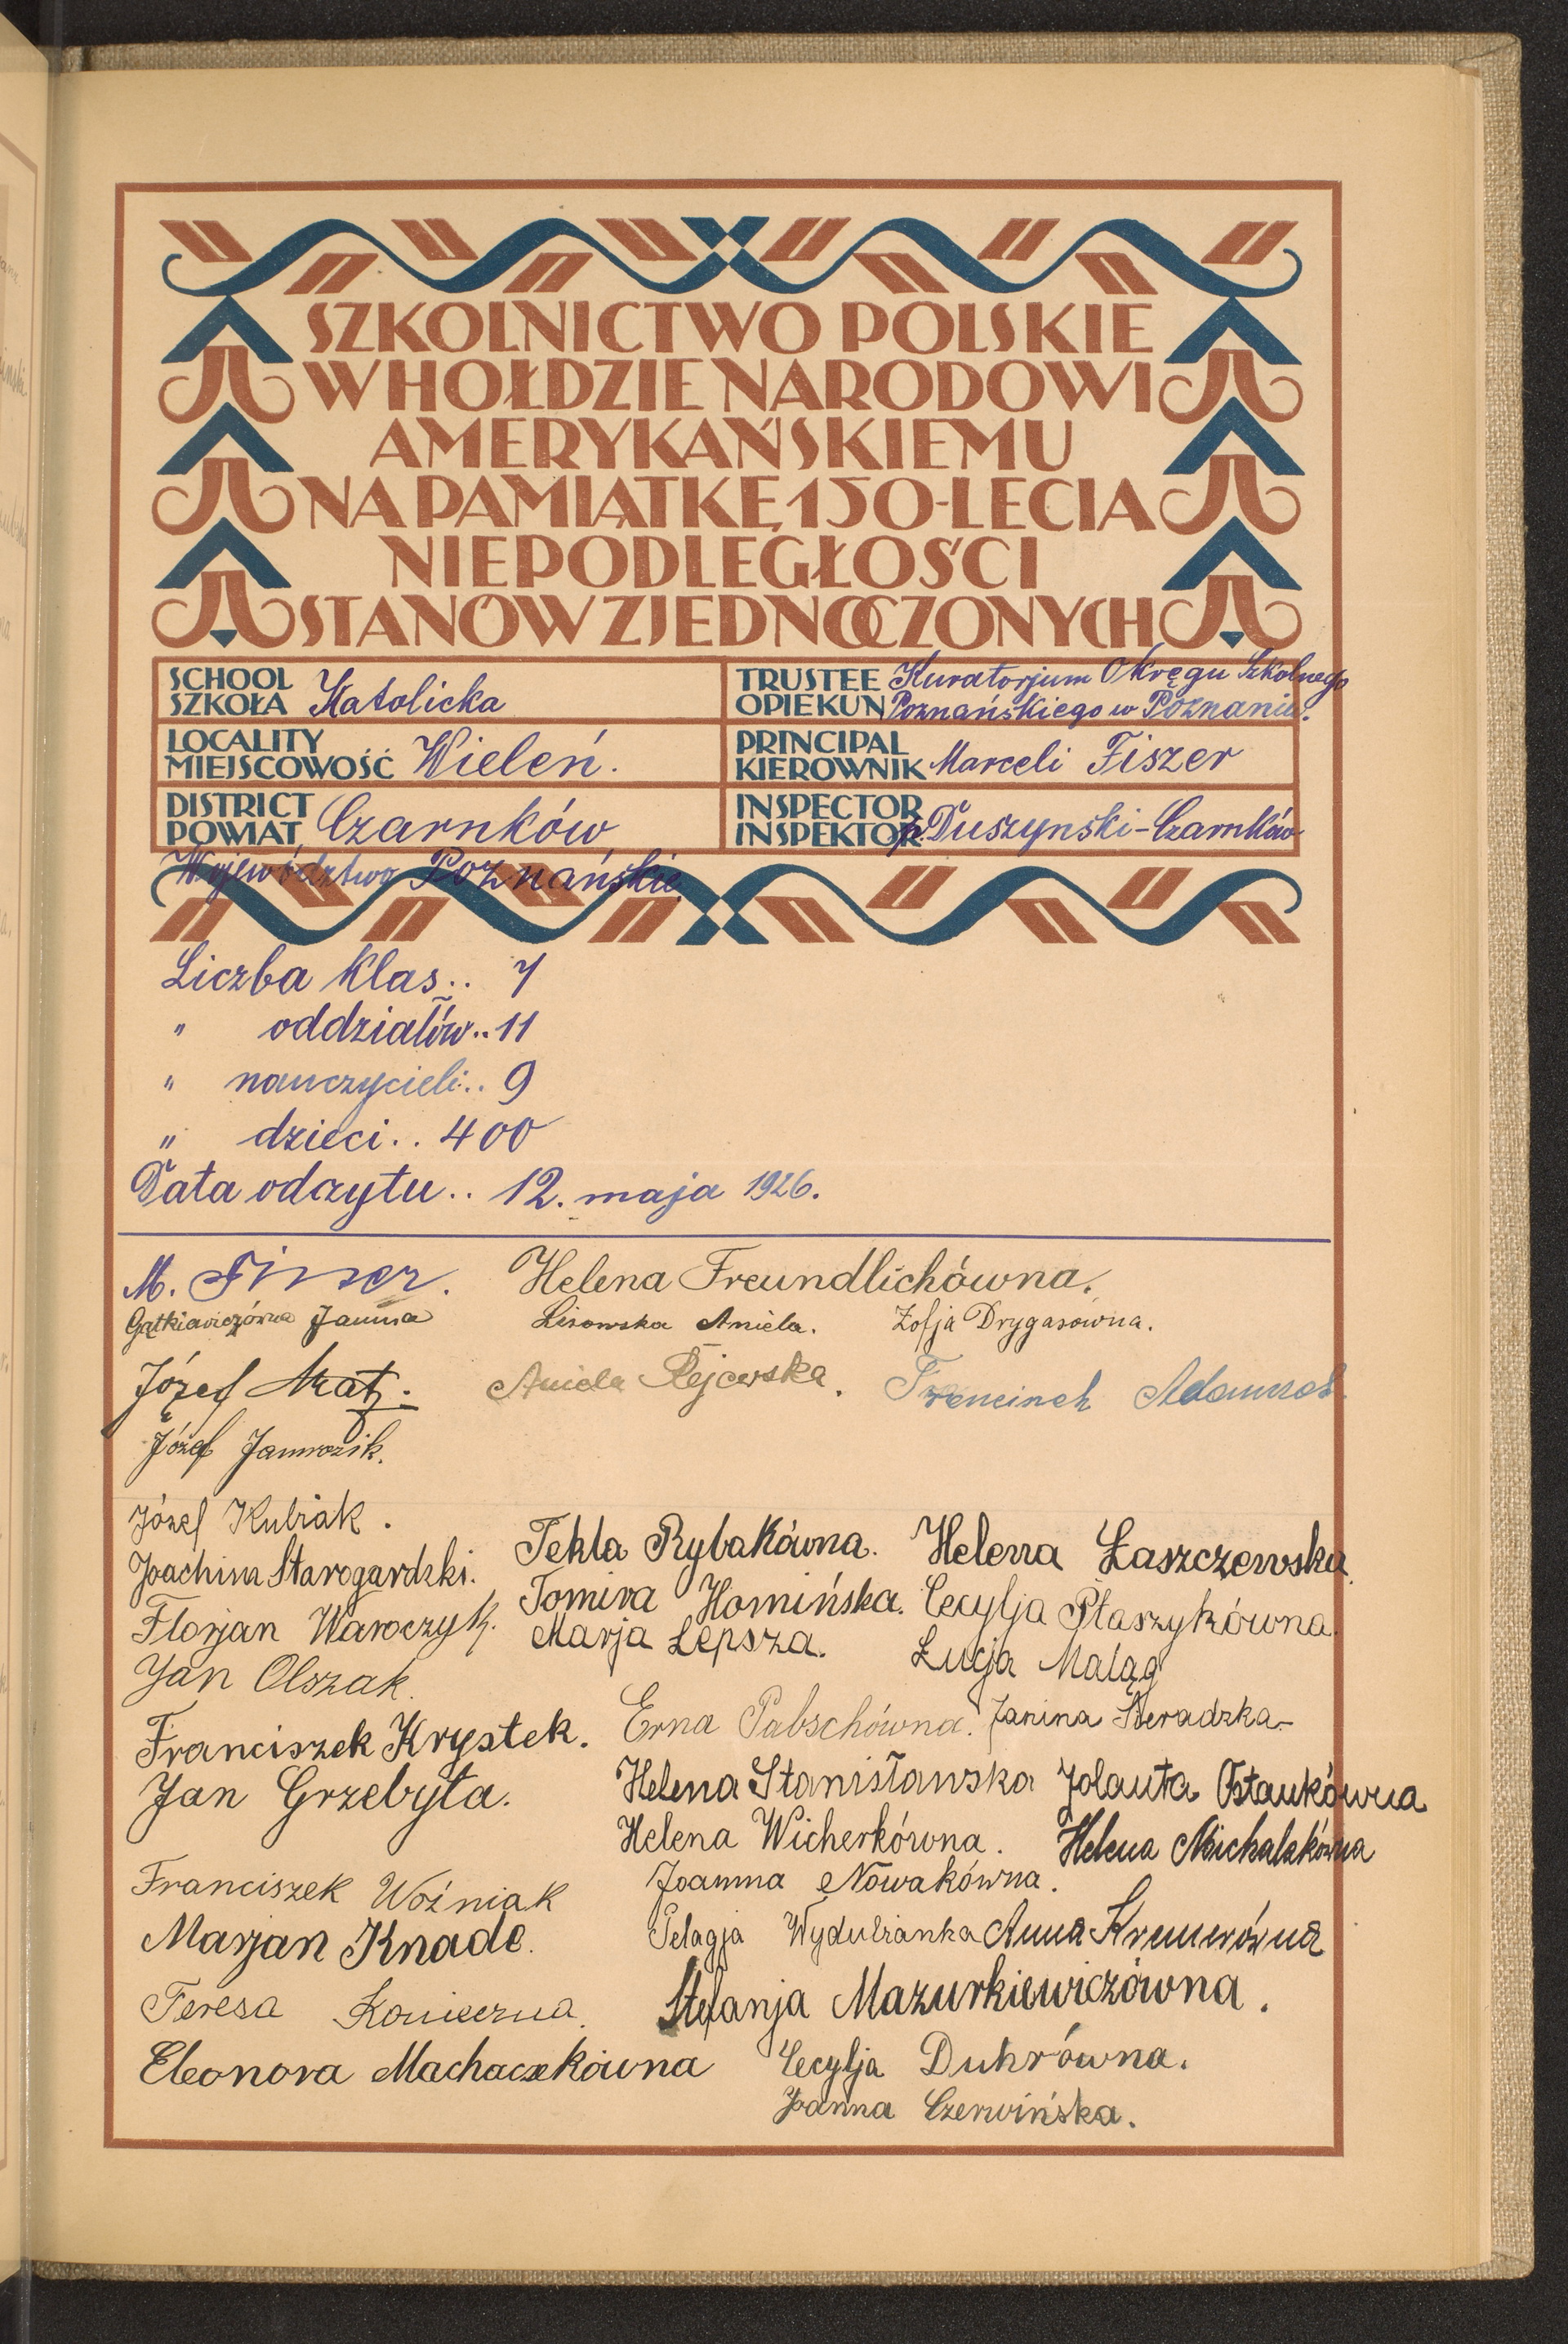 SZKOLNICTWO POLSKIE
W HOŁDZIE NARODOWI
AMERYKAŃSKIEMU
NA PAMIĄTKĘ 150-LECIA
NIEPODLEGŁOŚCI
STANÓW ZJEDNOCZONYCH
SCHOOL
SZKOŁA Katolicka
TRUSTEE Kuratorjum Okręgu Szkolnego
OPIEKUN Poznańskiego w Poznaniu.
LOCALITY
MIEJSCOWOŚĆ Wieleń.
PRINCIPAL
KIEROWNIK Marceli Fiszer
DISTRICT
POWIAT Czarnków
INSPECTOR
INSPEKTOR p. Duszynski-Czarnków
Wojewódrtwo Poznańskie
Liczba klas.. 7
" oddziałów.. 11
" nauczycieli.. 9
" dzieci.. 400
Data odczytu.. 12. maja 1926.
M. Fiszer. Helena Freundlichówna.
Gątkiewiczówna Janina Lisowska Aniela. Zofja Drygasówna.
Józef Aniela Franciszek
Józef Jamrozik.
Józef Kubiak.
Joachim Starogardzki. Tekla Rybakówna. Helena Łaszczewska.
Florjan Waroczyk. Tomira Homińska. Cecylja Ptaszykówna.
Jan Olszak. Marja Lepsza. Łucja Maląg
Franciszek Krystek. Erna Pabschówna. Janina Sieradzka.
Jan Grzebyta. Helena Stanisławska Jolanta Ostankówna
Helena Wicherkówna. Helena Michalakówna
Franciszek Woźniak Joanna Nowakówna.
Marjan Knade. Pelagja Wydubianka Anna Kremerówna
Teresa Konieczna. Stefanja Mazurkiewiczówna.
Eleonora Machaczkówna Cecylja Duhrówna.
Joanna Czerwińska.